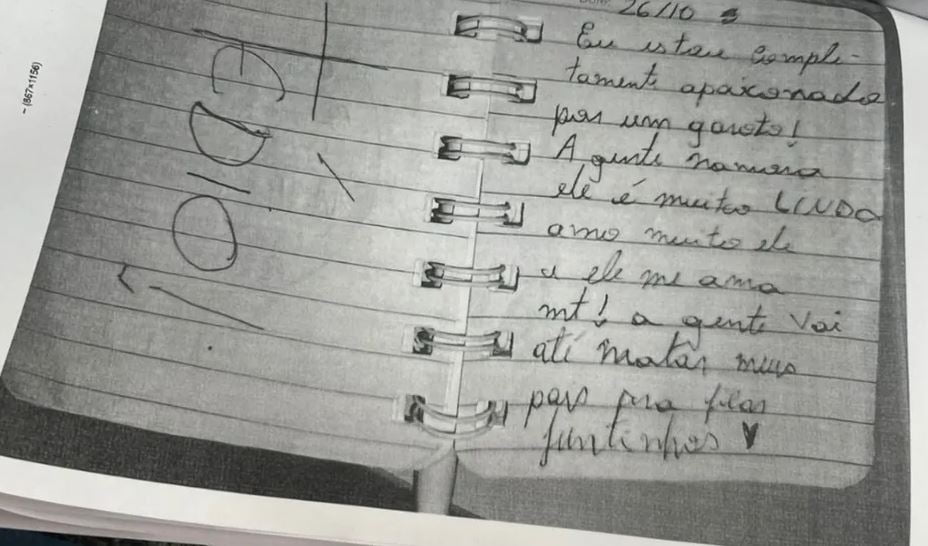 ~ (867x1156)
TE ODIO!
26/10
Eu estou comple-
tamente apaixonado
por um garoto!
A gente namora
ele é muito LINDO
amo muito ele
e ele me ama
mt! a gente vai
até matar meus
pais pra ficar
juntinhos ♥